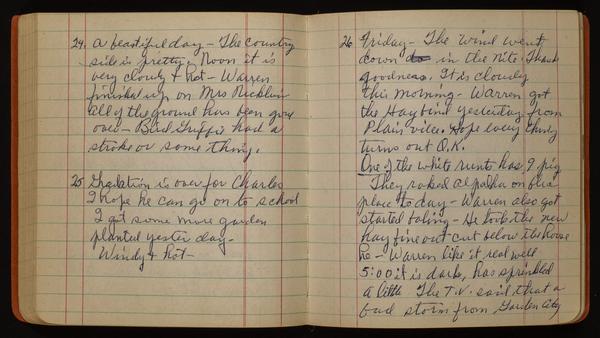 24. A beautiful day - The country
side is pretty. Noon it is
very cloudy & hot - Warren
finished up on Mrs
all of the ground has been gone
over - Bird had a
stroke or some thing.
25 is over for Charles
I hope he can go on to school
I got some more garden
planted yester day -
Windy & hot -
26 Friday - The wind went
down in the nite. Thank
goodness. It is cloudy
this morning - Warren got
the Haybind yesterday from
Plainville. Hope every thing
turns out O.K.
One of the white runts has 9 pig
They raked on
place to day - Warren also got
started baling - He took the new
hay fine out cut below the house
he - Warren like it real well
5:00 it is dark, has sprinkled
a little The T.V. said that a
bad storm from Garden City